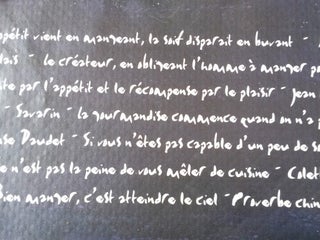 pétit vient en mangeant, la soif disparait en buvant -
lais - le créateur, en obligeant l'homme à manger po
ite par l'appétit et le récompense par le plaisir - Jean
- Savarin - la gourmandise commence quand on n'a p
se Daudet - Si vous n'êtes pas capable d'un peu de so
e n'est pas la peine de vous mêler de cuisine - Colet
Bien manger, c'est atteindre le ciel - Proverbe chin